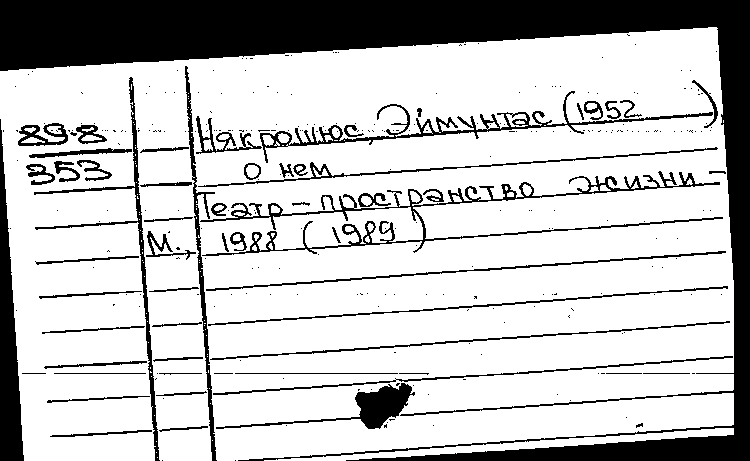 89-8
353
Някрошюс, Эймунтас (1952 )
о нем.
Театр – пространство жизни –
М., 1988 ( 1989 )